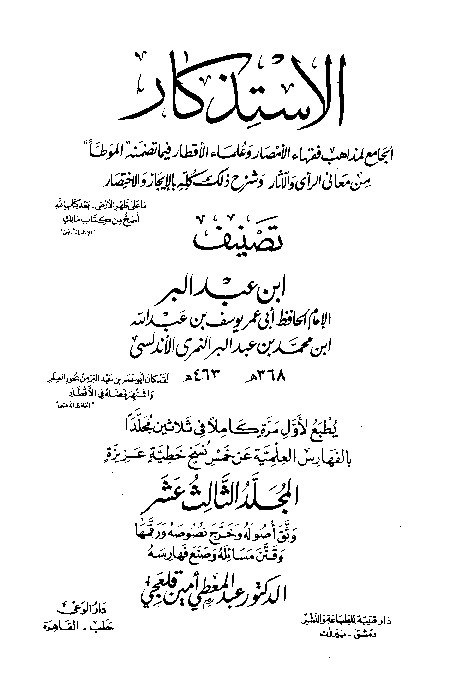 الاستذكار
الجامع لمذاهب فقهاء الأمصار وعلماء الأقطار فيما تضمنه "الموطأ"
من معاني الرأي والآثار وشرح ذلك كله بالإيجاز والاختصار
ما على ظهر الأرض - بعد كتاب الله
أصح من كتاب مالك
تصنيف
ابن عبد البر
الإمام الحافظ أبي عمر يوسف بن عبد الله
ابن محمد بن عبد البر النمري الأندلسي
٣٦٨هـ ٤٦٣هـ
لقد كان أبو عمر بن عبد البر من بحور العلم
واشتهر فضله في الأقطار
يُطبع لأول مرة كاملاً في ثلاثين مجلداً
بالفهارس العلمية عن خمس نسخ خطية عزيزة
المجلد الثالث عشر
وثق أصوله وخرج نصوصه ورقمها
وقنن مسائله وصنع فهارسه
الدكتور عبد المعطي أمين قلعجي
دار قتيبة للطباعة والنشر
دمشق - بيروت
دار الوعي
حلب - القاهرة